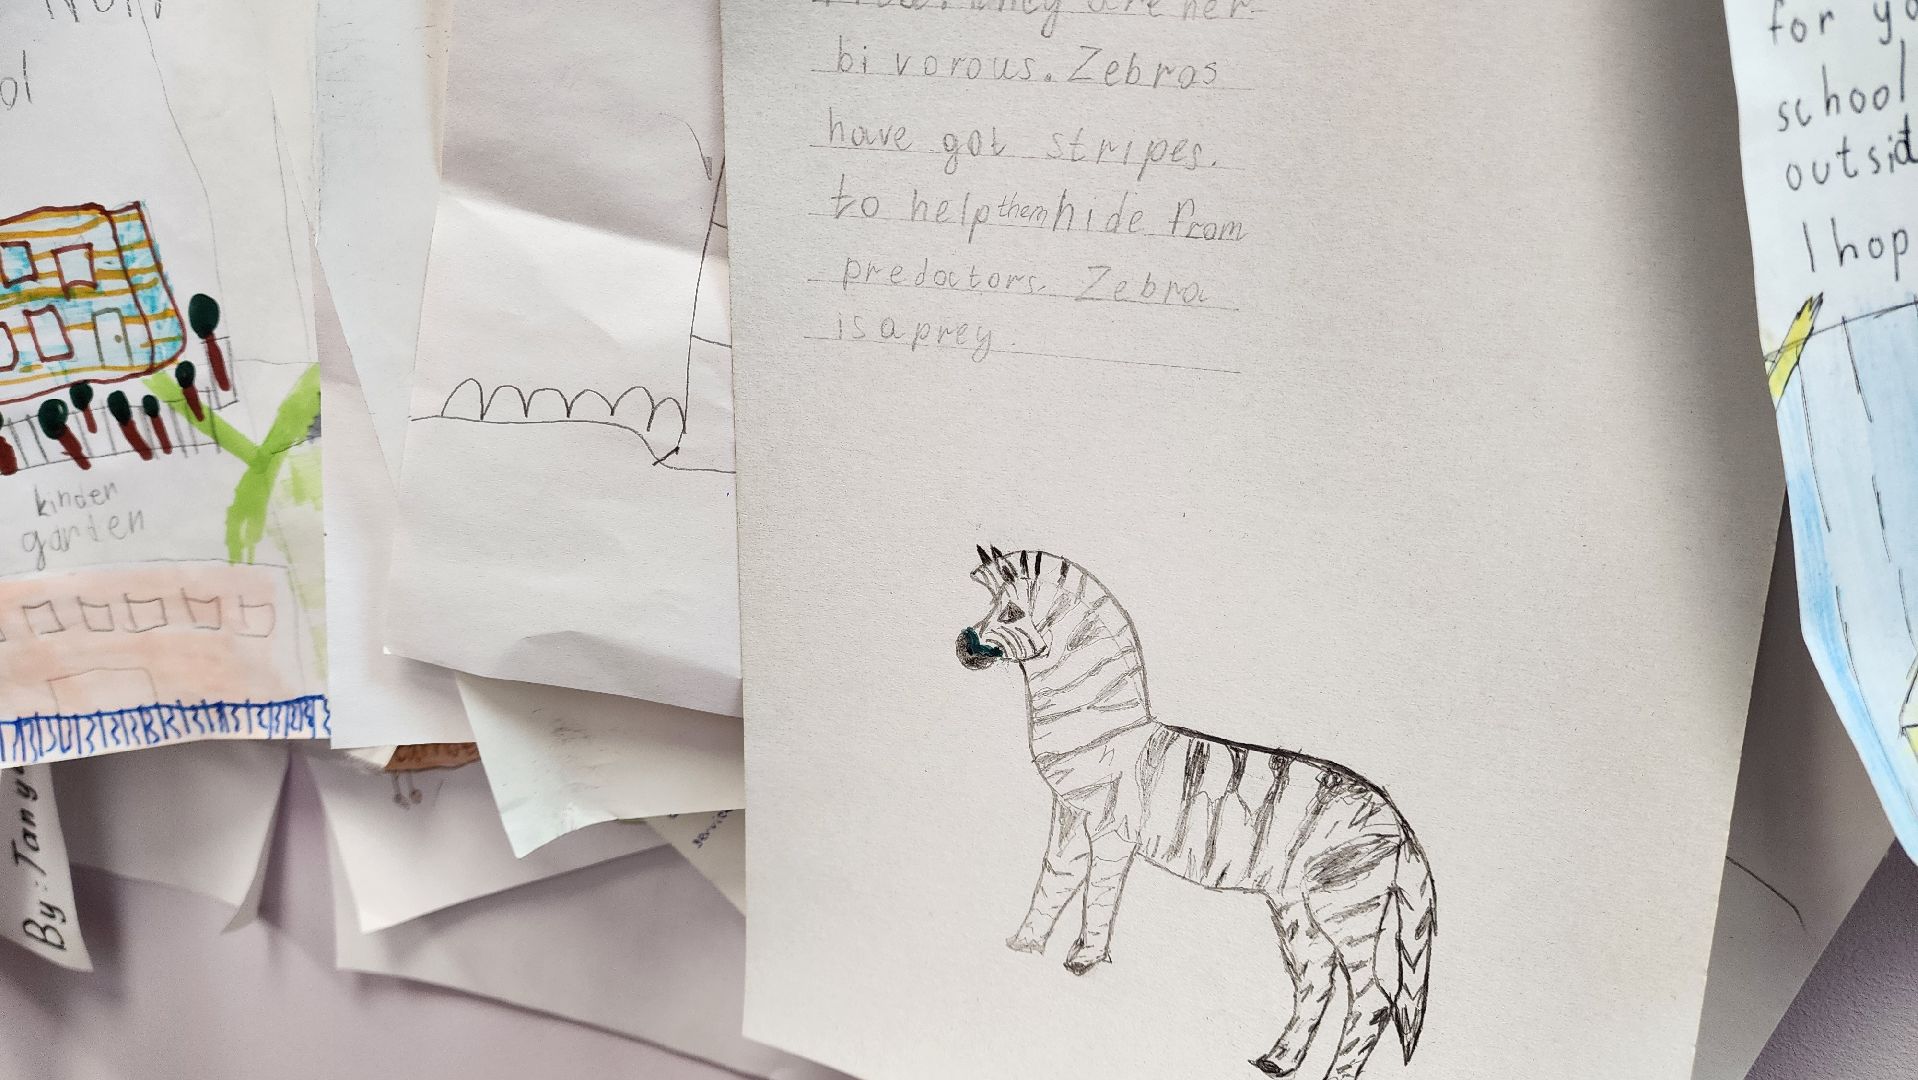 ol
kinder
garten
By: Tany
they are her
bi vorous. Zebras
have got stripes.
to help them hide from
predoctors. Zebra
is a prey.
for yo
school
outsid
I hop